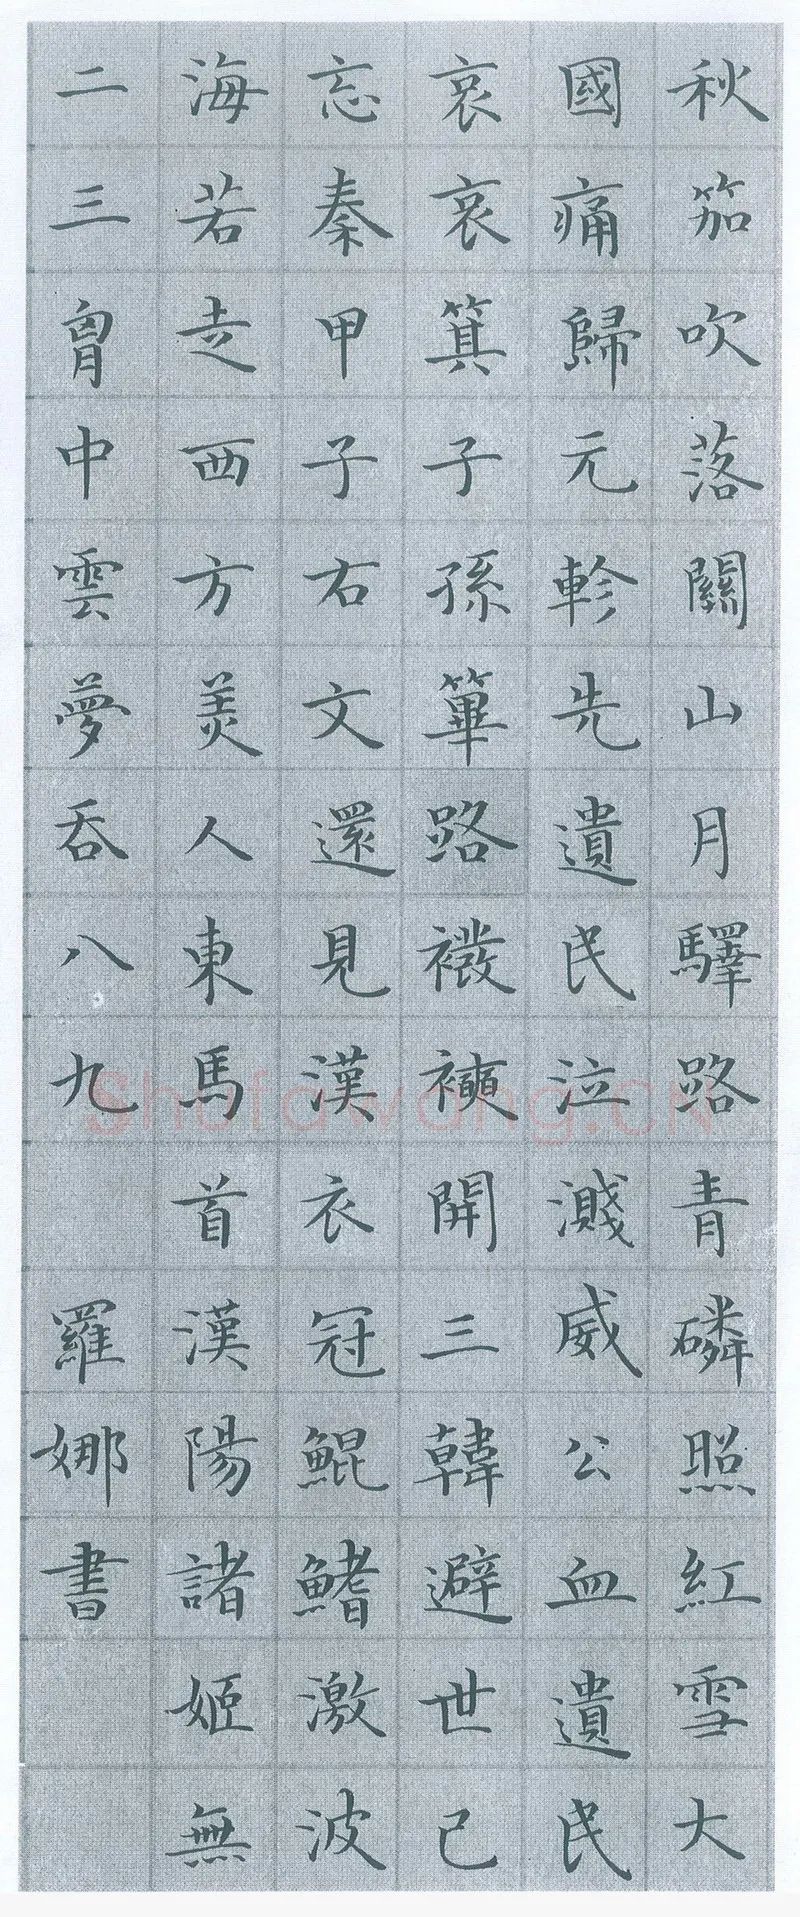 秋笳吹落關山月驛路青磷照紅雪大
國痛歸元軫先遺民泣濺威公血遺民
哀哀箕子孫篳路襏襫開三韓避世已
忘秦甲子右文還見漢衣冠鯤鰭激波
海若走西方美人東馬首漢陽諸姬無
二三胷中雲夢吞八九
羅娜書
Shufawang.CN